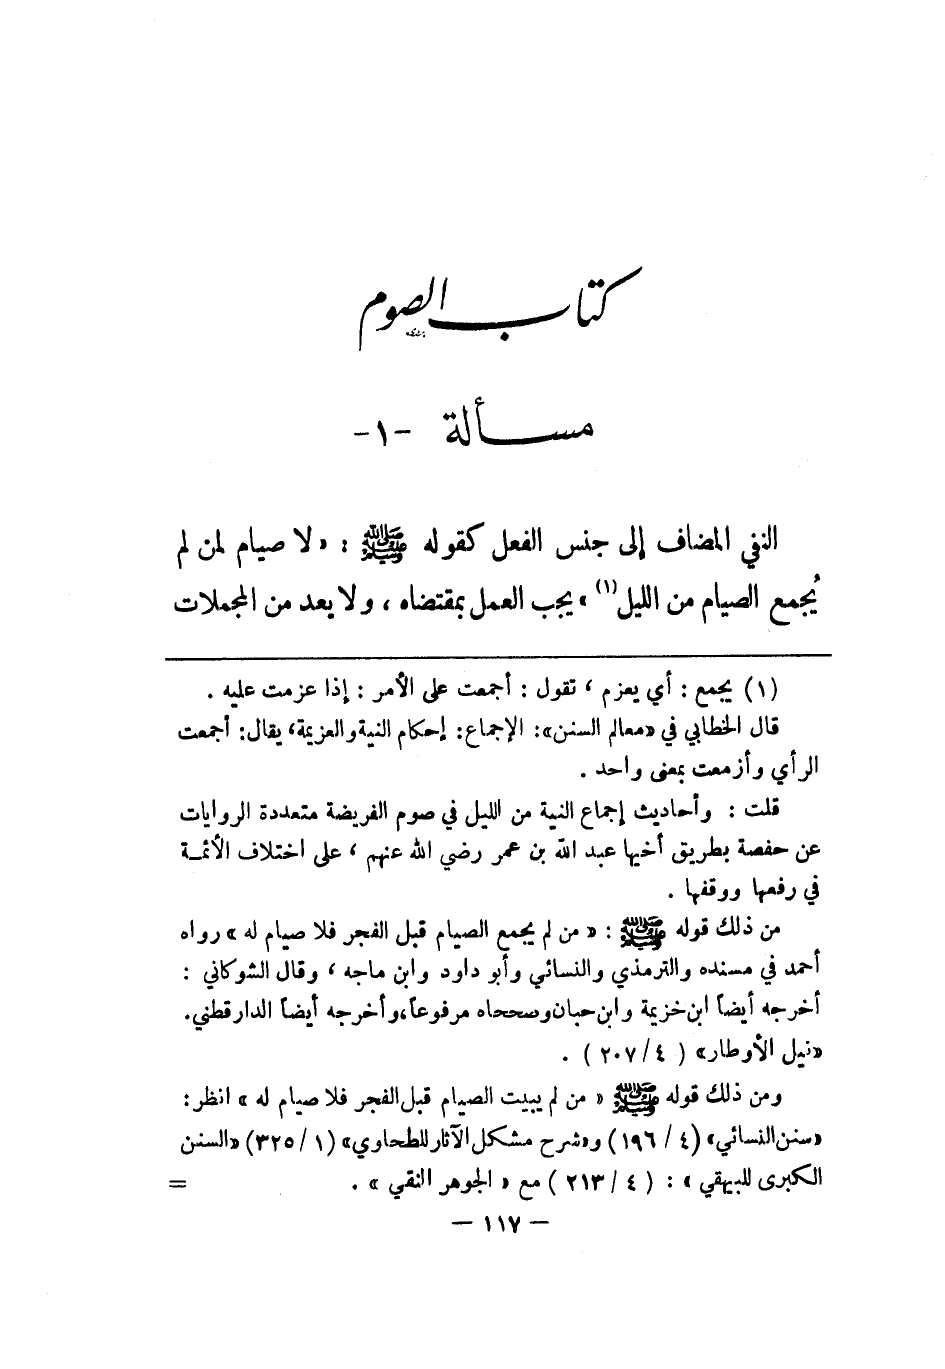 كتاب الصوم
مسألة -١-
النفي المضاف إلى جنس الفعل كقوله ﷺ : « لا صيام لمن لم
يُجمع الصيام من الليل(١) » يجب العمل بمقتضاه ، ولا يعد من المجملات
(١) يجمع : أي يعزم ، تقول : أجمعت على الأمر : إذا عزمت عليه .
قال الخطابي في «معالم السنن»: الإجماع: إحكام النية والعزيمة، يقال: أجمعت
الرأي وأزمعت بمعنى واحد .
قلت : وأحاديث إجماع النية من الليل في صوم الفريضة متعددة الروايات
عن حفصة بطريق أخيها عبد الله بن عمر رضي الله عنهم ، على اختلاف الأئمـة
في رفعها ووقفها .
من ذلك قوله ﷺ : « من لم يجمع الصيام قبل الفجر فلا صيام له » رواه
أحمد في مسنده والترمذي والنسائي وأبو داود وابن ماجه ، وقال الشوكاني :
أخرجه أيضاً ابن خزيمة وابن حبان وصححاه مرفوعاً، وأخرجه أيضاً الدارقطني.
«نيل الأوطار» ( ٤/ ٢٠٧ ) .
ومن ذلك قوله ﷺ « من لم يبيت الصيام قبل الفجر فلا صيام له » انظر :
«سنن النسائي» (٤ / ١٩٦) و«شرح مشكل الآثار للطحاوي» (١ / ٣٢٥) «السنن
الكبرى للبيهقي » : ( ٤ / ٢١٣ ) مع « الجوهر النقي » . =
— ١١٧ —